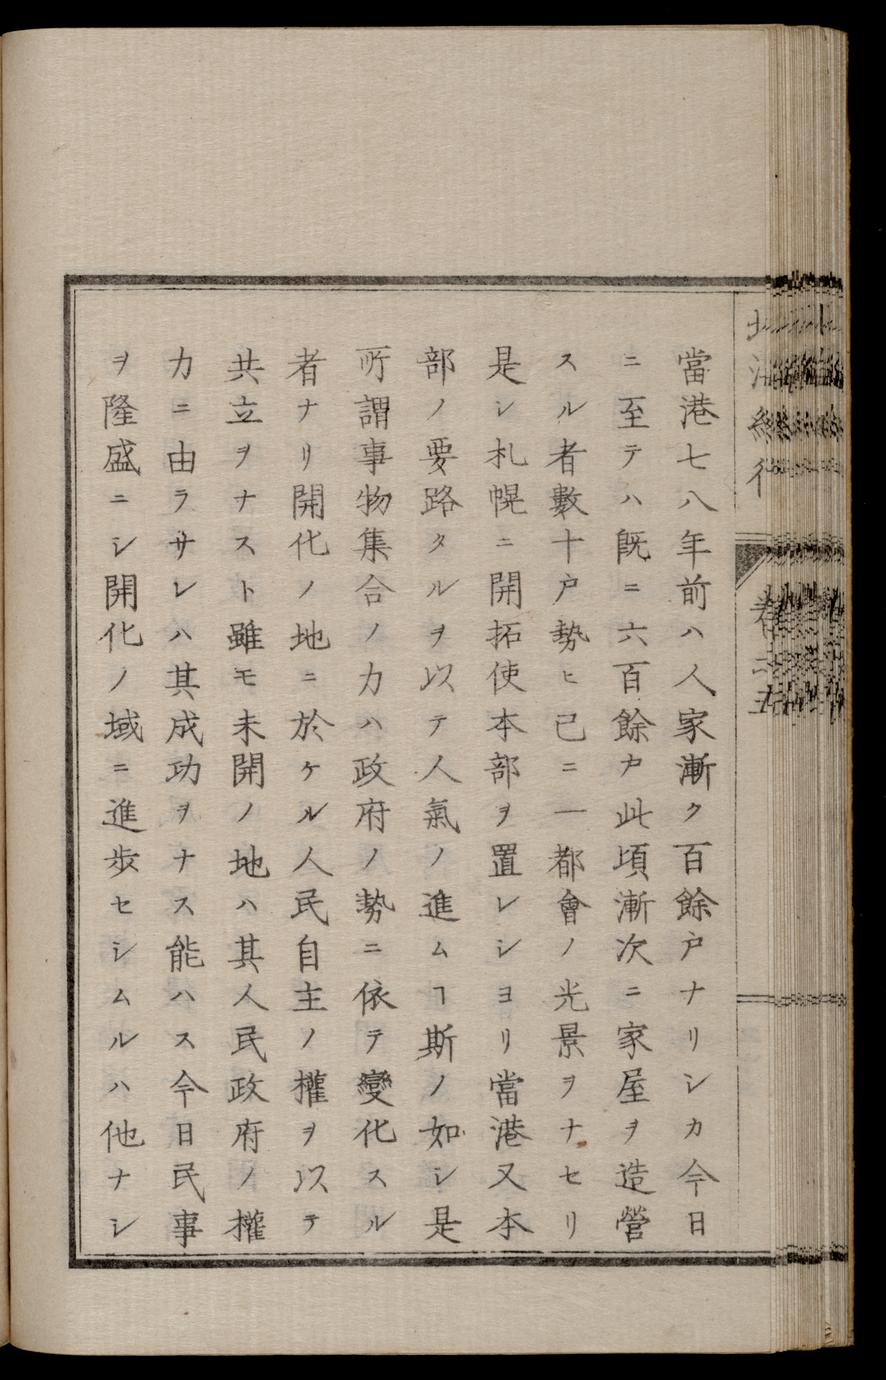 當港七八年前ハ人家漸ク百餘戸ナリシカ今日
ニ至テハ既ニ六百餘戸此頃漸次ニ家屋ヲ造營
スル者數十戸勢ヒ已ニ一都會ノ光景ヲナセリ
是レ札幌ニ開拓使本部ヲ置レシヨリ當港又本
部ノ要路タルヲ以テ人氣ノ進ムヿ斯ノ如シ是
所謂事物集合ノ力ハ政府ノ勢ニ依テ變化スル
者ナリ開化ノ地ニ於ケル人民自主ノ權ヲ以テ
共立ヲナスト雖モ未開ノ地ハ其人民政府ノ權
力ニ由ラサレハ其成功ヲナス能ハス今日民事
ヲ隆盛ニシ開化ノ域ニ進歩セシムルハ他ナシ